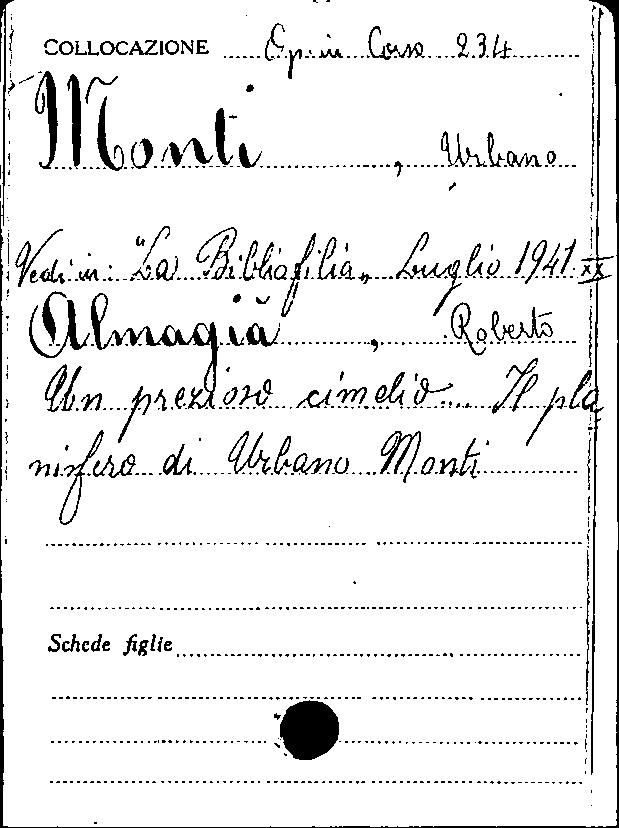 COLLOCAZIONE Op. in Corso 234
Monti, Urbano
Vedi in: "La Bibliofilia" Luglio 1941 XX
Almagià, Roberto
Un prezioso cimelio... Il pla
nisfero di Urbano Monti
Schede figlie